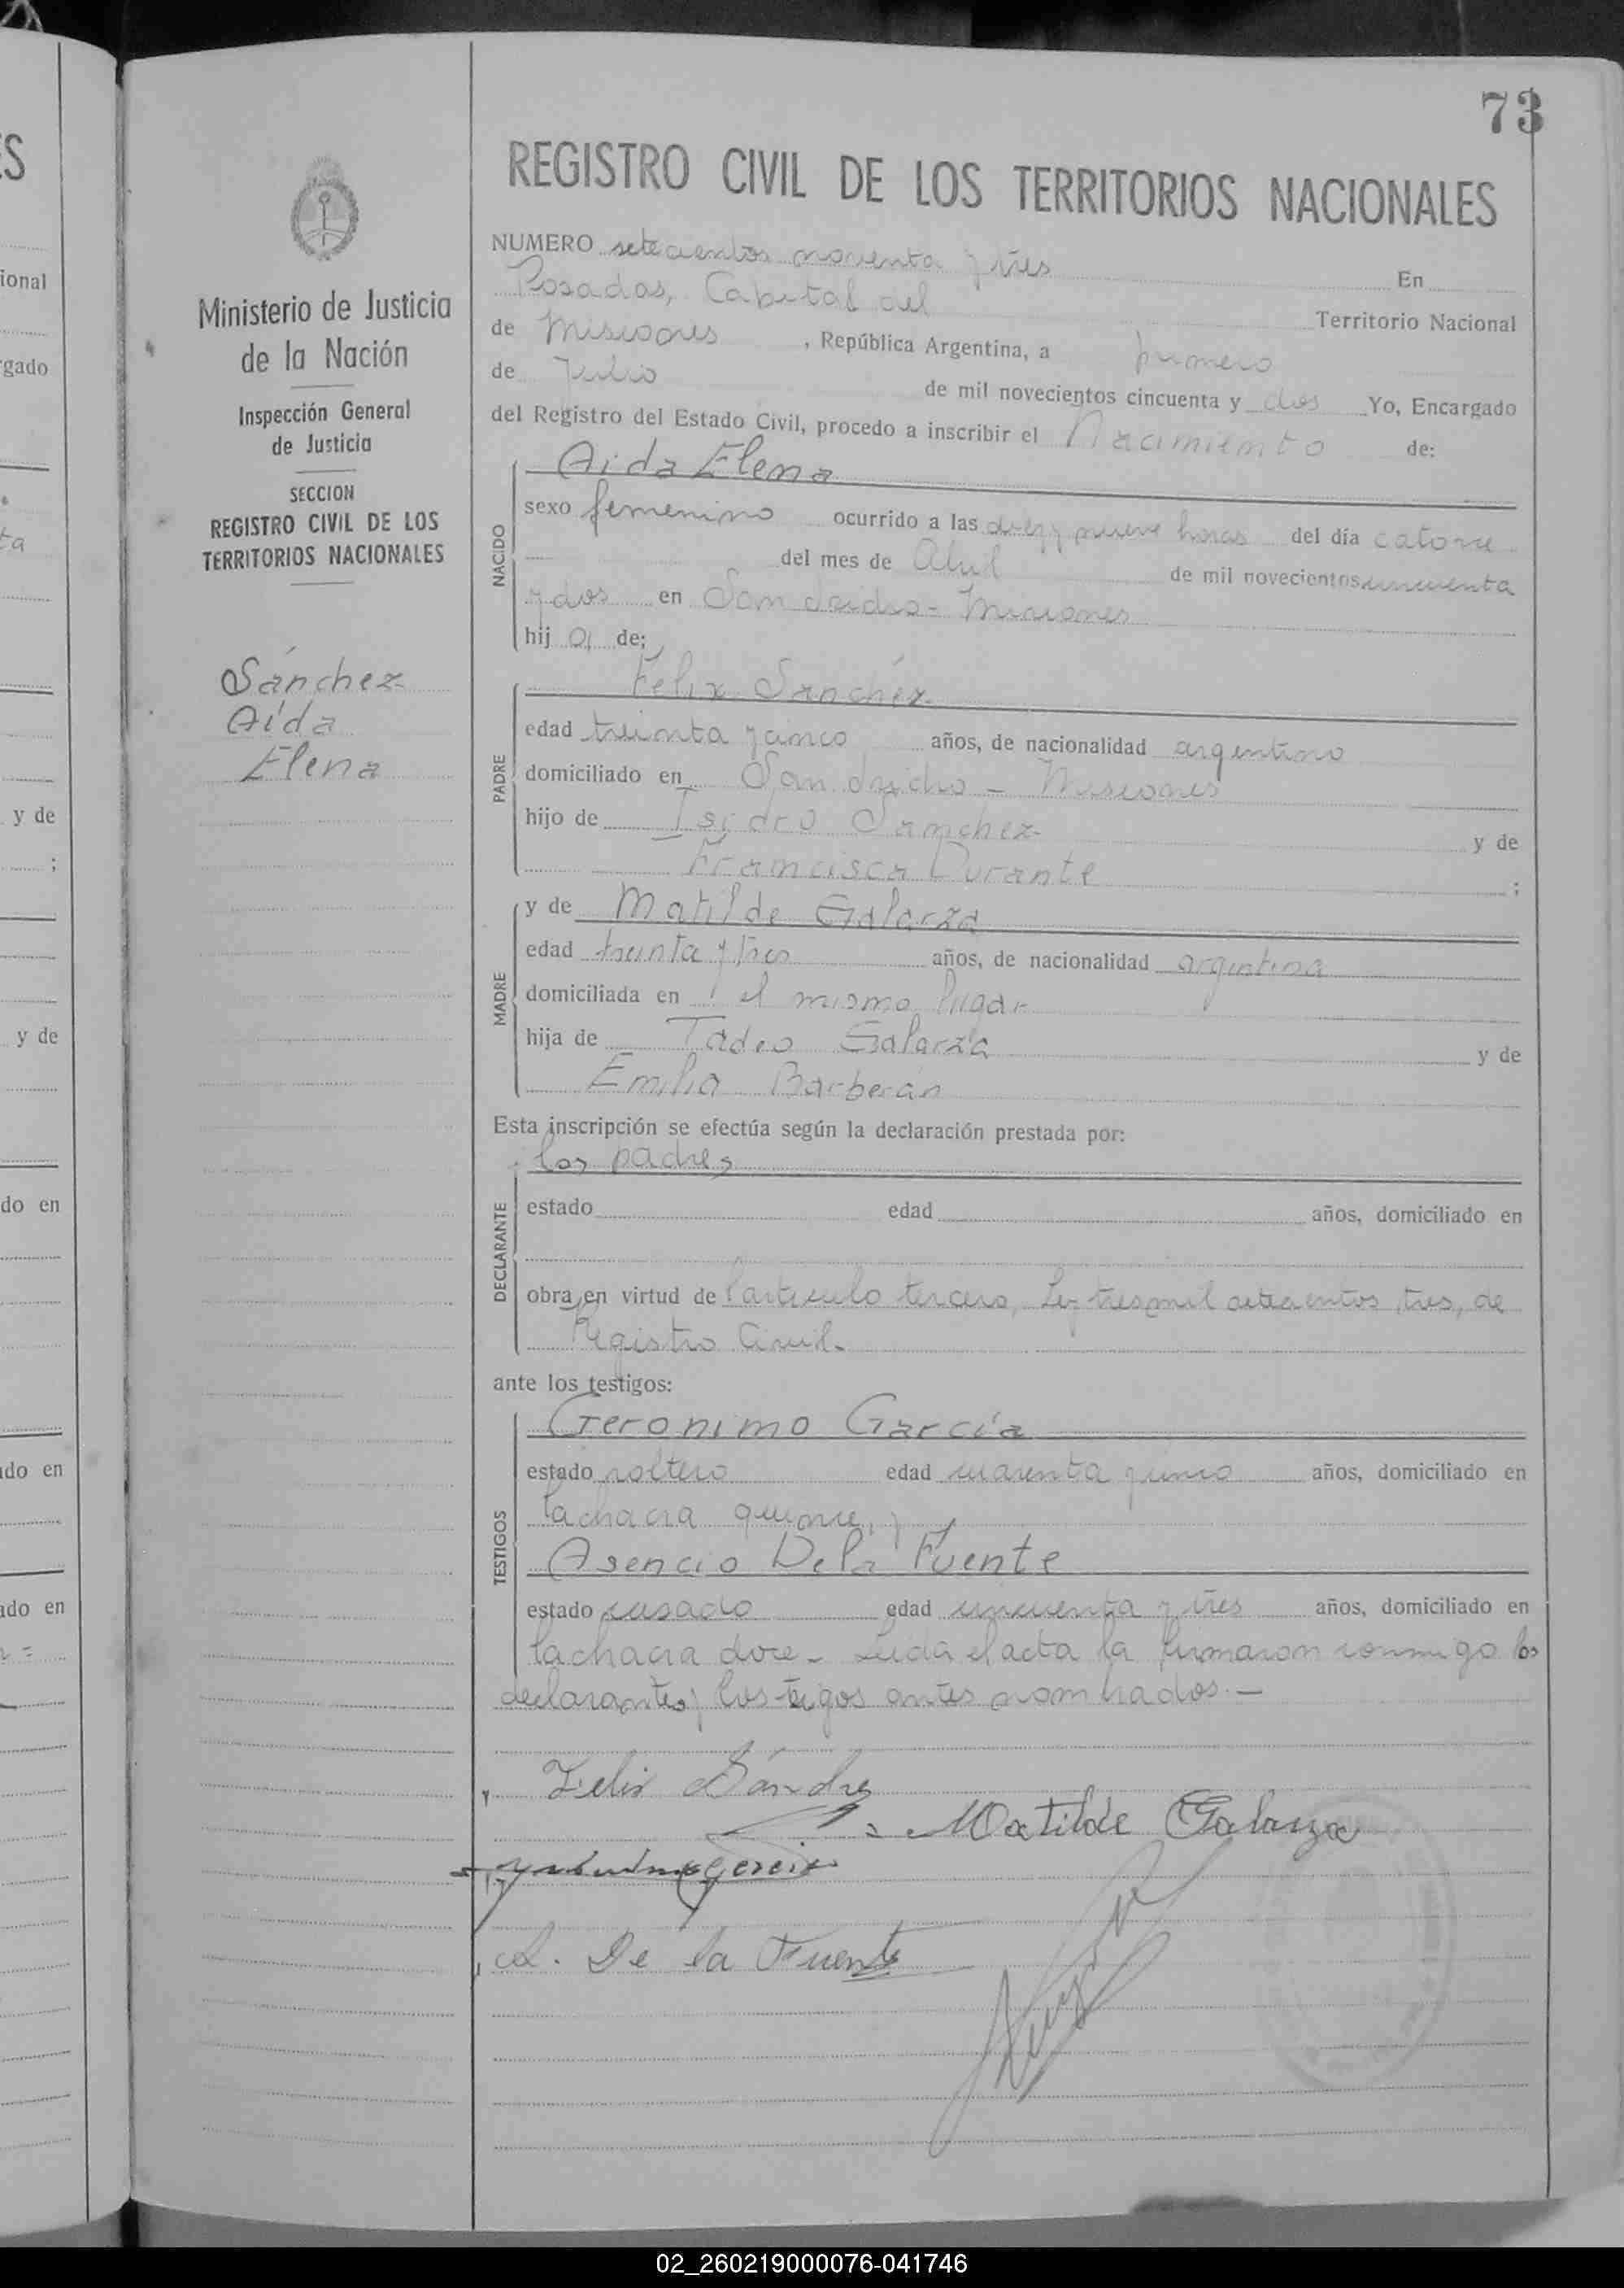 73
REGISTRO CIVIL DE LOS TERRITORIOS NACIONALES
Ministerio de Justicia
de la Nación
Inspección General
de Justicia
SECCION
REGISTRO CIVIL DE LOS
TERRITORIOS NACIONALES
Sánchez
Aída
Elena
NUMERO setecientos noventa y tres En
Posadas, Capital del Territorio Nacional
de Misiones , República Argentina, a primero
de Julio de mil novecientos cincuenta y dos Yo, Encargado
del Registro del Estado Civil, procedo a inscribir el Nacimiento de:
NACIDO
Aida Elena
sexo femenino ocurrido a las diez y nueve horas del día catorce
del mes de Abril de mil novecientos cincuenta
y dos en San Isidro - Misiones
hij a de:
PADRE
Félix Sánchez
edad treinta y cinco años, de nacionalidad argentino
domiciliado en San Isidro - Misiones
hijo de Isidro Sánchez y de
Francisca Durante ;
MADRE
y de Matilde Galarza
edad treinta y tres años, de nacionalidad argentina
domiciliada en el mismo lugar
hija de Tadeo Galarza y de
Emilia Barberán
Esta inscripción se efectúa según la declaración prestada por:
DECLARANTE
los padres
estado edad años, domiciliado en
obra en virtud de l'artículo tercero, Ley tres mil setecientos tres, de
Registro Civil.
ante los testigos:
TESTIGOS
Geronimo García
estado soltero edad cuarenta y cinco años, domiciliado en
la chacra quince, y
Asencio De la Fuente
estado casado edad cincuenta y tres años, domiciliado en
la chacra doce - Leída el acta la firmaron conmigo los
declarantes y los tigos antes nombrados. -
Felix Sánchez
Matilde Galarza
A. De la Fuente
ional
gado
y de
y de
do en
do en
ado en
02_260219000076-041746